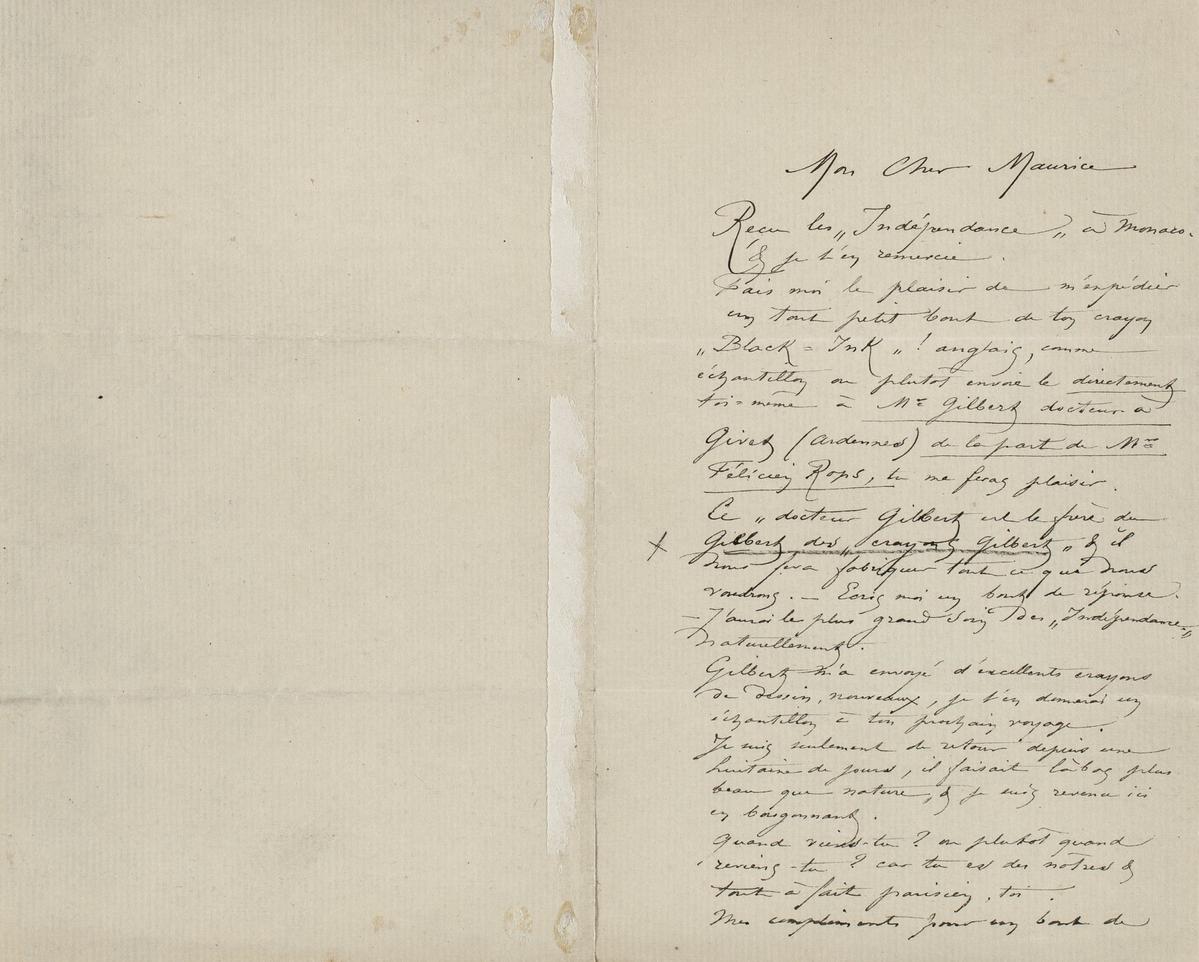 Mon Cher Maurice
Reçu les „Indépendance„ à Monaco.
& je t'en remercie.
Fais moi le plaisir de m'expédier
un tout petit bout de ton crayon
„Black=Ink„! anglais, comme
échantillon ou plutôt envoie le directement
toi=même à Mr Gilbert docteur à
Givet (Ardennes) de la part de Mr
Félicien Rops, tu me feras plaisir.
Ce „docteur Gilbert est le frère du
Gilbert des „crayons Gilbert„ & il
nous fera fabriquer tout ce que nous
voudrons. — Ecris moi un bout de réponse.
– J'aurai le plus grand soin des „Indépendance„
naturellement.
Gilbert m'a envoyé d'excellents crayons
de dessin, nouveaux, je t'en donnerai un
échantillon à ton prochain voyage.
Je suis seulement de retour depuis une
huitaine de jours, il faisait làbas plus
beau que nature, & je suis revenu ici
en bougonnant.
Quand viens-tu? ou plutôt quand
reviens-tu? car tu es des nôtres &
tout à fait parisien, toi.
Mes compliments pour un bout de